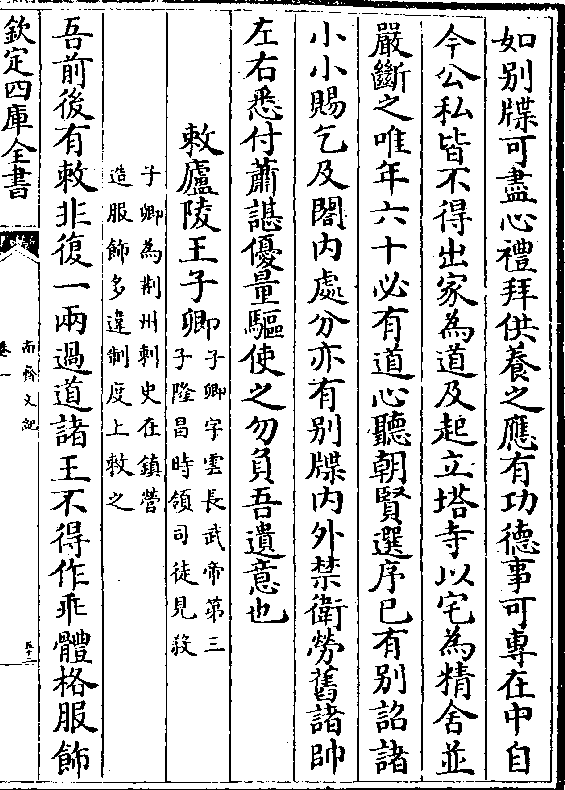 如别牒可盡心禮拜供養之應有功德事可專在中自
今公私皆不得出家為道及起立塔寺以宅為精舍並
嚴斷之唯年六十必有道心聽朝賢選序已有别詔諸
小小賜乞及閤内處分亦有别牒内外禁衛勞舊諸帥
左右悉付蕭諶優量驅使之勿負吾遺意也
敕廬陵王子卿
子卿字雲長武帝第三
子隆昌時領司徒見殺
子卿為荆州刺史在鎮營
造服飾多違制度上敕之
吾前後有敕非復一兩過道諸王不得作乖體格服飾
欽定四庫全書
南齊文紀
卷一